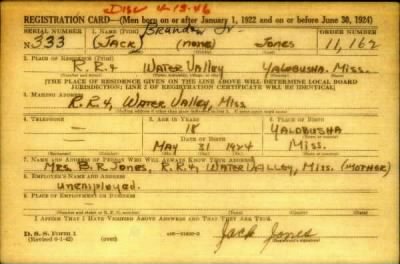 Disc 4-13-46
REGISTRATION CARD—(Men born on or after January 1, 1922 and on or before June 30, 1924)
SERIAL NUMBER 1. NAME (Print) Brandon Jr. ORDER NUMBER
333 (JACK) (NONE) JONES 11,162
2. PLACE OF RESIDENCE (Print)
R.R.4 WATER VALLEY YALOBUSHA. MISS.
[THE PLACE OF RESIDENCE GIVEN ON THE LINE ABOVE WILL DETERMINE LOCAL BOARD
JURISDICTION; LINE 1 OF REGISTRATION CERTIFICATE WILL BE IDENTICAL]
3. MAILING ADDRESS
R.R.4, WATER VALLEY, MISS
4. TELEPHONE 5. AGE IN YEARS 6. PLACE OF BIRTH
— 18 YALOBUSHA
DATE OF BIRTH
MAY 31 1924 MISS.
7. NAME AND ADDRESS OF PERSON WHO WILL ALWAYS KNOW YOUR ADDRESS
MRS. B.R. JONES, R.R.4, WATER VALLEY, MISS. (MOTHER)
8. EMPLOYER'S NAME AND ADDRESS
UNEMPLOYED.
9. PLACE OF EMPLOYMENT OR BUSINESS
—
I AFFIRM THAT I HAVE VERIFIED ABOVE ANSWERS AND THAT THEY ARE TRUE.
D. S. S. FORM 1
(Revised 6-1-42) (over) Jack Jones